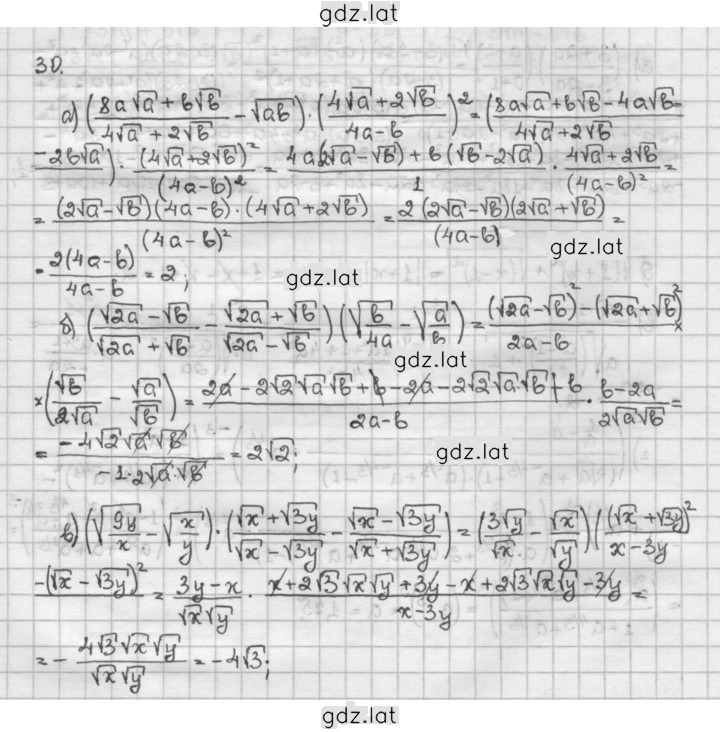 gdz.lat
30.
а) ((8a√a + b√b)/(4√a + 2√b) − √ab) · ((4√a + 2√b)/(4a − b))² = (8a√a + b√b − 4a√b −
− 2b√a)/(4√a + 2√b) · (4√a + 2√b)²/(4a − b)² = (4a(2√a − √b) + b(√b − 2√a))/1 · (4√a + 2√b)/(4a − b)² =
= (2√a − √b)(4a − b) · (4√a + 2√b)/(4a − b)² = 2(2√a − √b)(2√a + √b)/(4a − b) =
gdz.lat
= 2(4a − b)/(4a − b) = 2;
gdz.lat
б) ((√2a − √b)/(√2a + √b) − (√2a + √b)/(√2a − √b)) (√(b/4a) − √(a/b)) = ((√2a − √b)² − (√2a + √b)²)/(2a − b) ×
gdz.lat
× (√b/2√a − √a/√b) = (2a − 2√2√a√b + b − 2a − 2√2√a·√b − b)/(2a − b) · (b − 2a)/(2√a√b) =
= (−4√2√a√b)/(−1·2√a·√b) = 2√2;
gdz.lat
в) (√(9y/x) − √(x/y)) · ((√x + √3y)/(√x − √3y) − (√x − √3y)/(√x + √3y)) = (3√y/√x − √x/√y) ((√x + √3y)²
− (√x − √3y)²)/(x − 3y) = (3y − x)/(√x√y) · (x + 2√3√x√y + 3y − x + 2√3√x√y − 3y)/(x − 3y) =
= − (4√3√x√y)/(√x√y) = −4√3;
gdz.lat